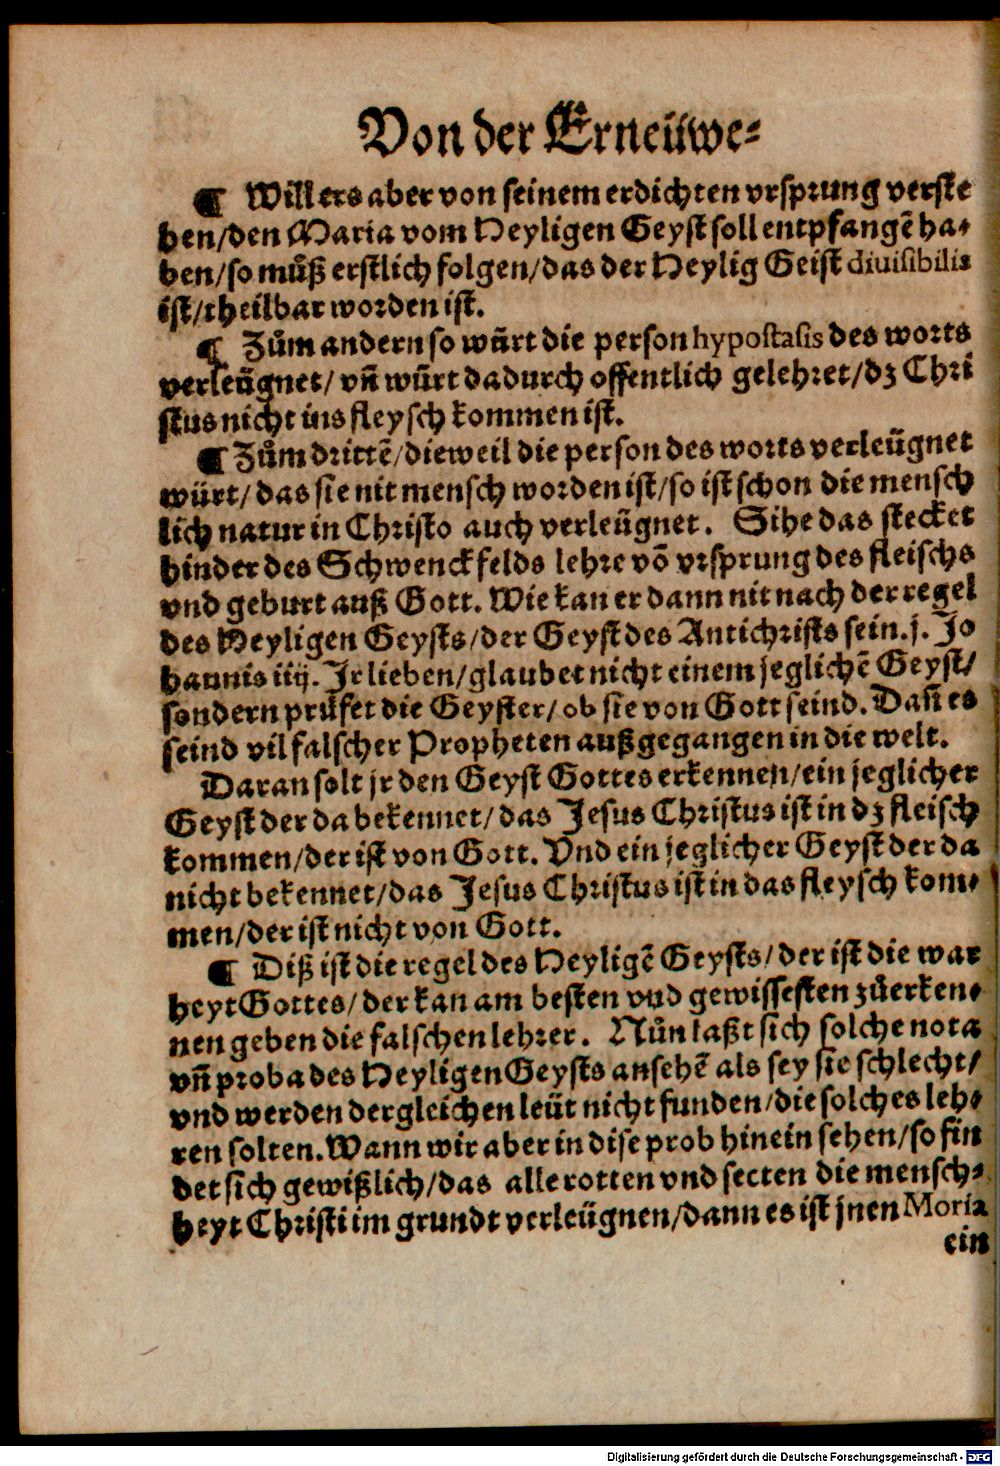 Von der Erneüwe⸗
¶ Will ers aber von seinem erdichten vrsprung verste
hen/den Maria vom Heyligen Geyst soll entpfangē ha⸗
ben/so můß erstlich folgen/das der Heylig Geist diuisibilis
ist/theilbar worden ist.
¶ Zům andern so würt die person hypostasis des worts
verleügnet/ vn̄ würt dadurch offentlich gelehret/dz Chri
stus nicht ins fleysch kommen ist.
¶ Zům drittē/dieweil die person des worts verleügnet
würt/das sie nit mensch worden ist/so ist schon die mensch
lich natur in Christo auch verleügnet. Sihe das stecket
hinder des Schwenckfelds lehre vō vrsprung des fleischs
vnd geburt auß Gott. Wie kan er dann nit nach der regel
des Heyligen Geysts/der Geyst des Antichrists sein. j. Jo
hannis iiij. Jr lieben/glaubet nicht einem jeglichē Geyst/
sondern prüfet die Geyster/ob sie von Gott seind. Dan̄ es
seind vil falscher Propheten außgegangen in die welt.
Daran solt jr den Geyst Gottes erkennen/ein jeglicher
Geyst der da bekennet/das Jesus Christus ist in dz fleisch
kommen/der ist von Gott. Vnd ein jeglicher Geyst der da
nicht bekennet/das Jesus Christus ist in das fleysch kom⸗
men/der ist nicht von Gott.
¶ Diß ist die regel des Heyligē Geysts/der ist die war
heyt Gottes/der kan am besten vnd gewissesten zůerken⸗
nen geben die falschen lehrer. Nůn laßt sich solche nota
vn̄ proba des Heyligen Geysts ansehē als sey sie schlecht/
vnd werden dergleichen leüt nicht funden/die solches leh⸗
ren solten. Wann wir aber in dise prob hinein sehen/so fin
det sich gewißlich/das alle rotten vnd secten die mensch⸗
heyt Christi im grundt verleügnen/dann es ist jnen Moria
ein
Digitalisierung gefördert durch die Deutsche Forschungsgemeinschaft - DFG